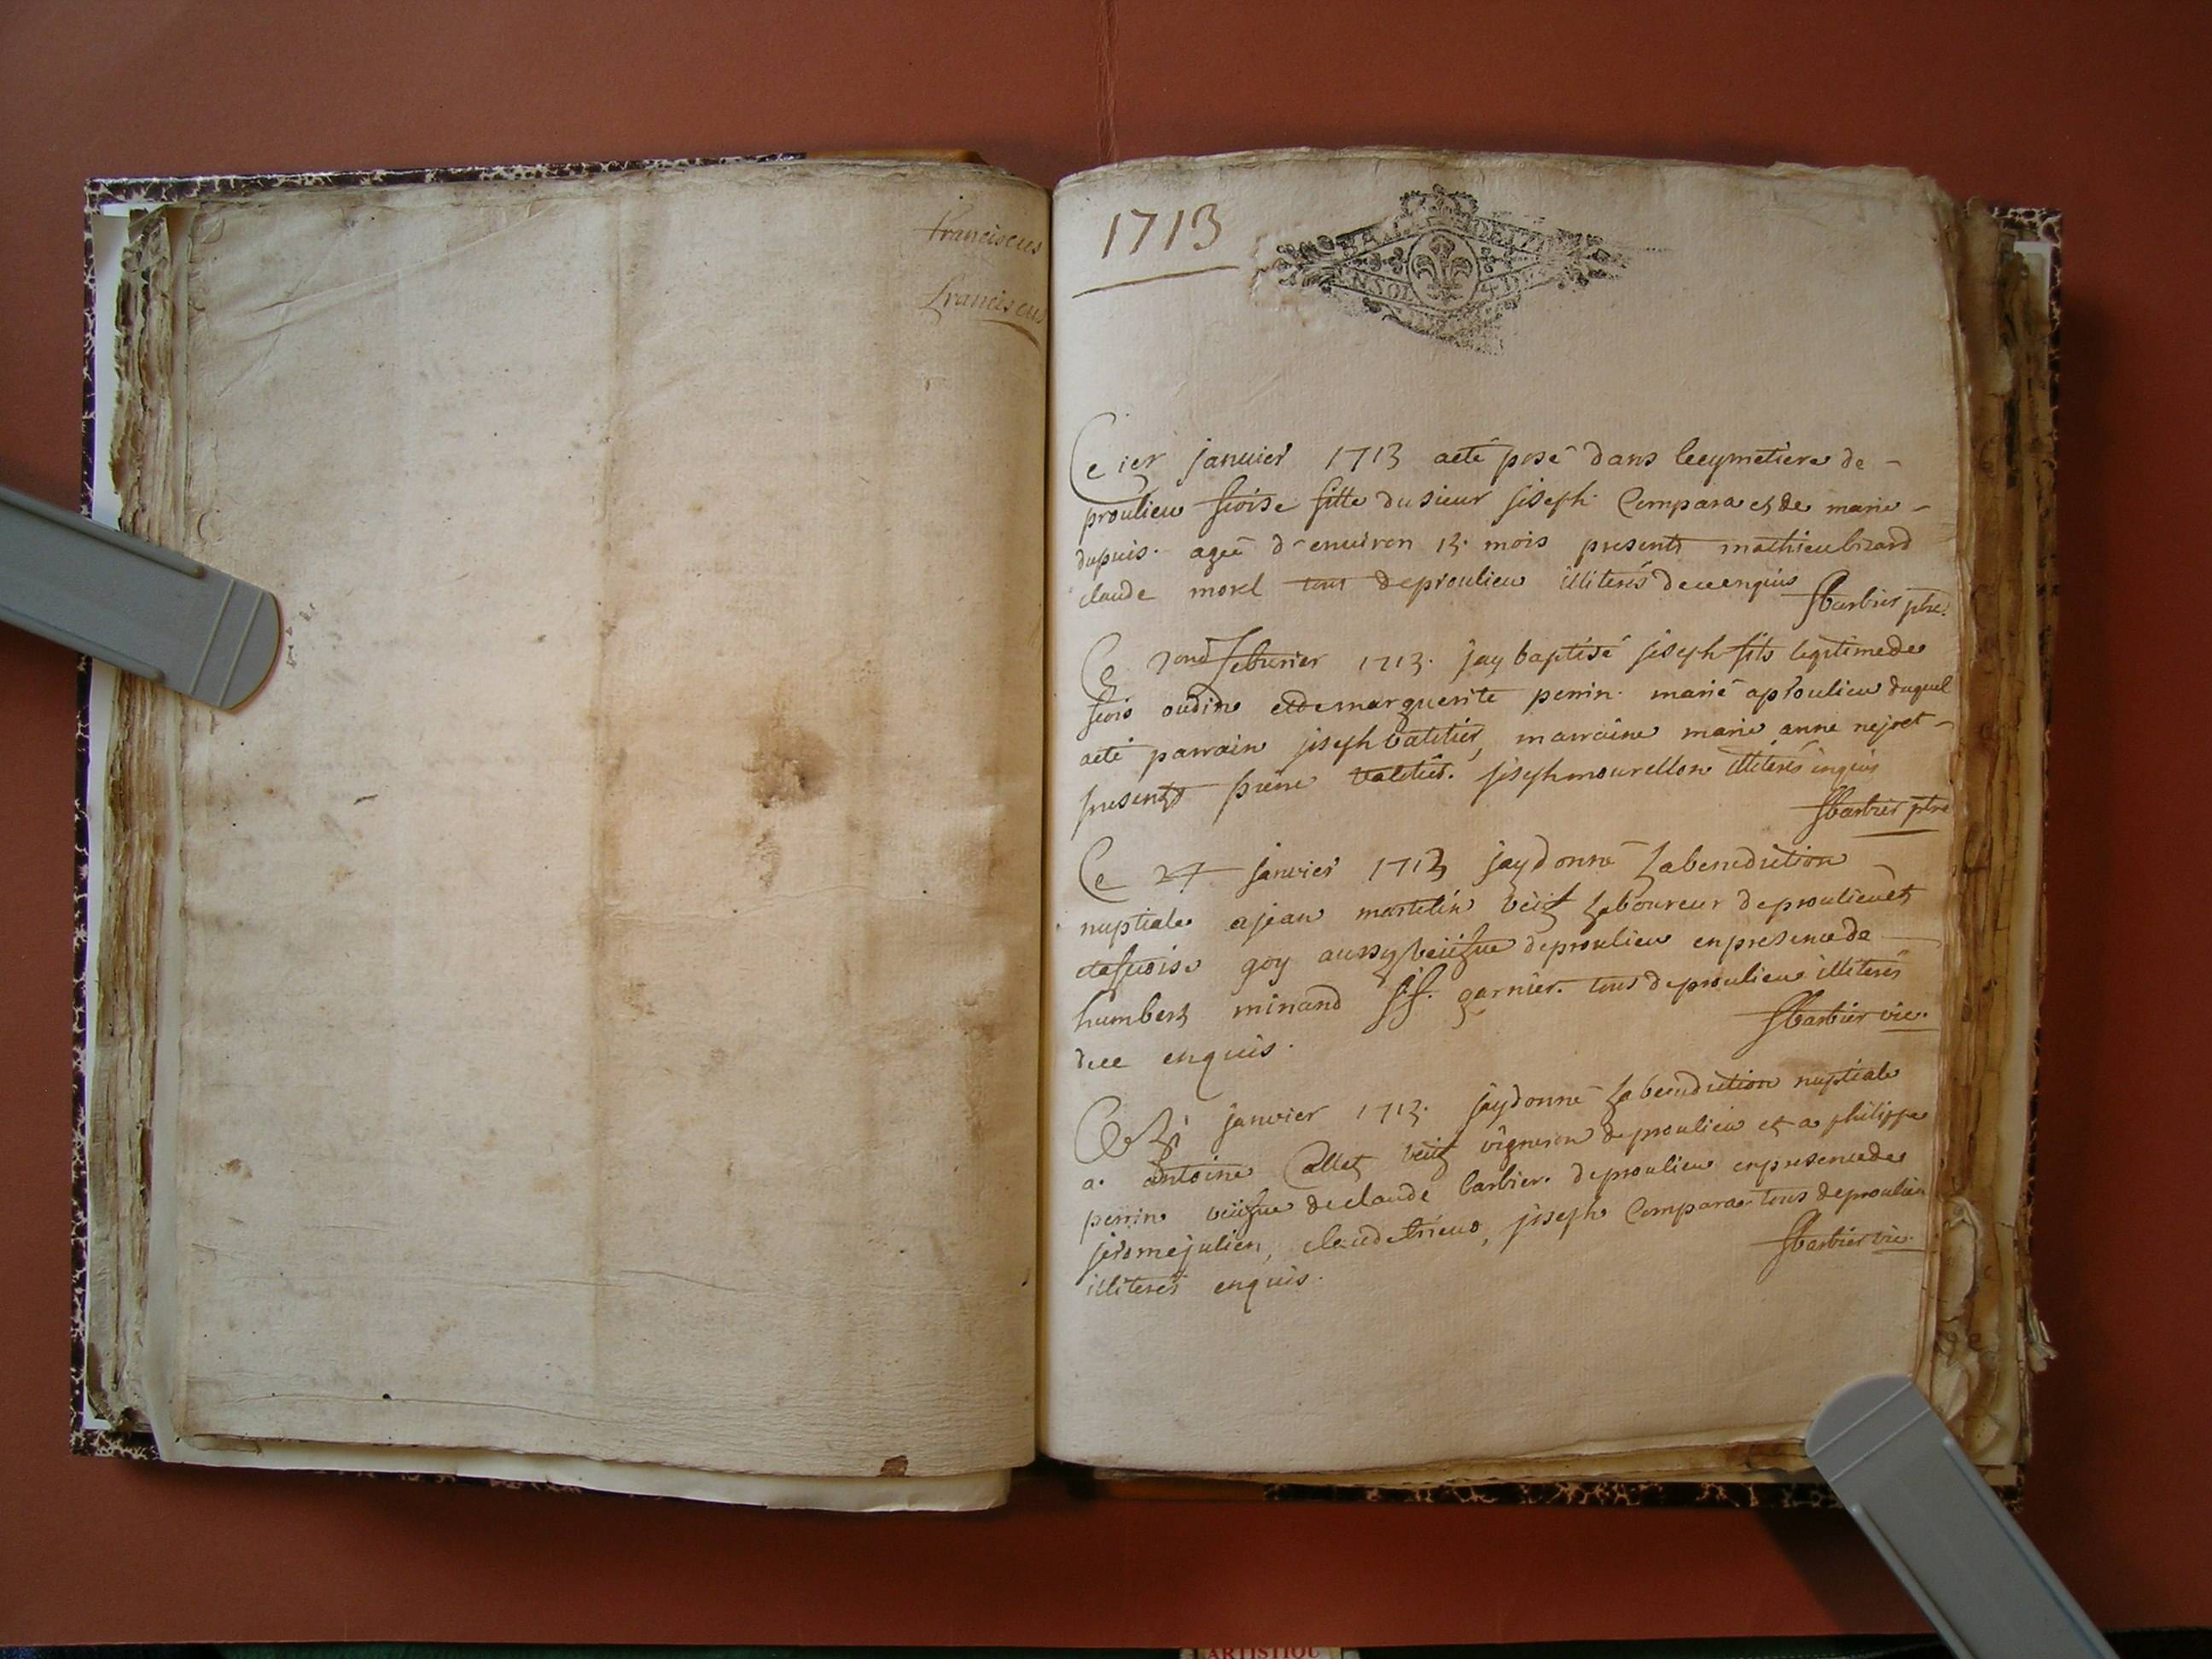 Franciscus
Franciscus
1713
Ce ier januier 1713 aeté posé dans lecymetiere de
proulieu froise fille du sieur joseph Compara et de marie
dupuis. agée d'enuiron 13. mois presents mathieu bizard
claude morel tous deproulieu illiterés de ce enquis
fbarbier ptre.
Ce 2ond feburier 1713. jay baptisé joseph fils legitime de
frois oudin et de marguerite perrin. marié aproulieu duquel
aeté parrain joseph valitier, marraine marie anne
presents pierre valitier. joseph mourellon illiterés inquis
fbarbier ptre
Ce janvier 1713 jaydonné labenediction
nuptiale ajean martelin veuf laboureur deproulieu et
froise goy aussy veufue deproulieu enpresence de
humbert minand garnier. tous deproulieu illiterés
de ce enquis.
fbarbier vic.
Ce janvier 1713. jaydonné labenediction nuptiale
a. antoine Callet veuf vigneron deproulieu et a philippe
perrin veufue declaude barbier. deproulieu enpresence de
jerome julien, claude trieux, joseph Compara tous deproulieu
illiterés enquis.
fbarbier vic.
ARTISTIQU